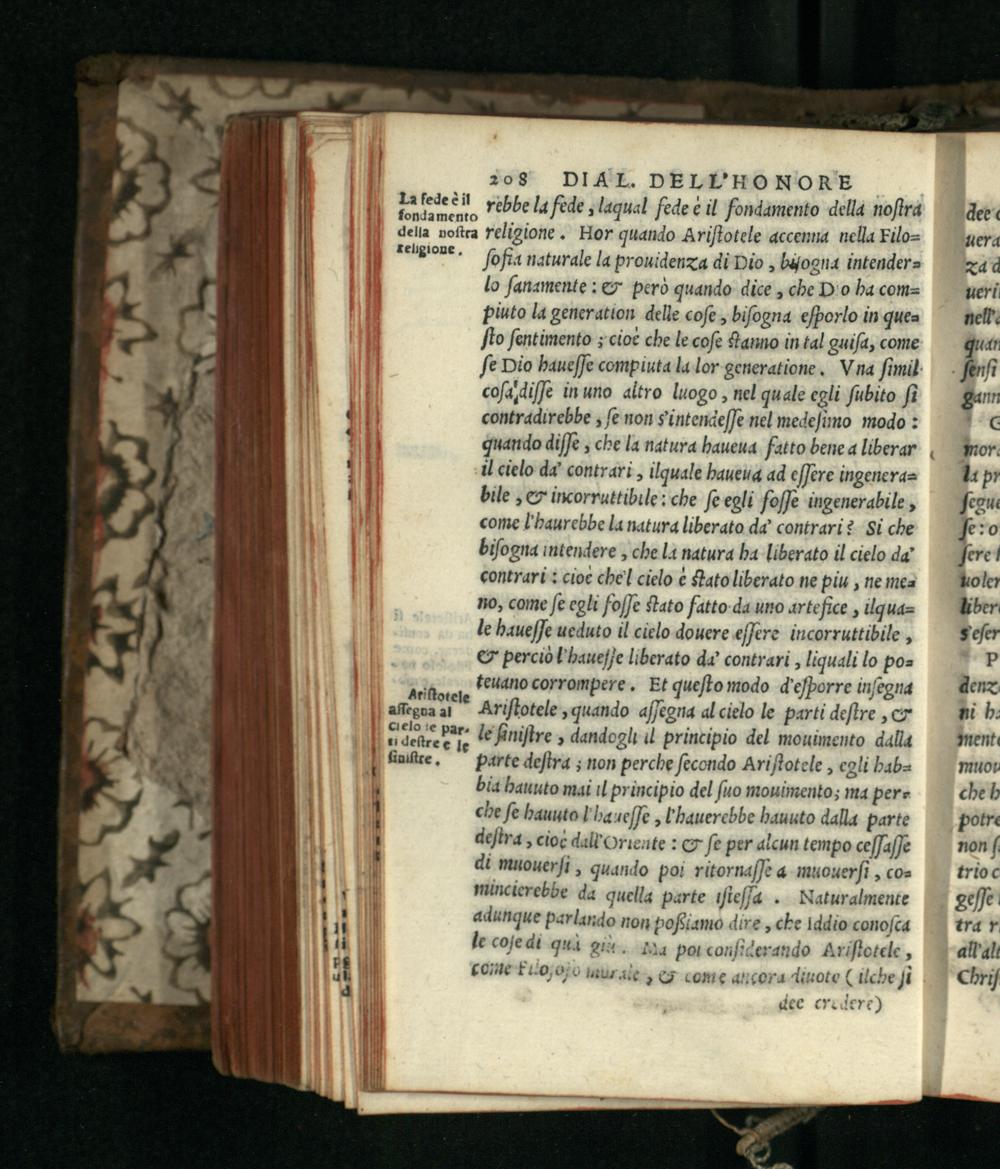 208 DIAL. DELL'HONORE
La fede è il
fondamento
della nostra
religione.
rebbe la fede, laqual fede é il fondamento della noſtra
religione. Hor quando Ariſtotele accenna nella Filo=
ſofia naturale la prouidenza di Dio, biſogna intender=
lo ſanamente: & però quando dice, che D o ha com=
piuto la generation delle coſe, biſogna eſporlo in que=
ſto ſentimento; cioè che le coſe ſtanno in tal guiſa, come
ſe Dio haueſſe compiuta la lor generatione. Vna ſimil
coſa diſſe in uno altro luogo, nel quale egli ſubito ſi
contradirebbe, ſe non s'intendeſſe nel medeſimo modo:
quando diſſe, che la natura haueua fatto bene a liberar
il cielo da' contrari, ilquale haueua ad eſſere ingenera=
bile, & incorruttibile: che ſe egli foſſe ingenerabile,
come l'haurebbe la natura liberato da' contrari? Si che
biſogna intendere, che la natura ha liberato il cielo da'
contrari: cioè che'l cielo è ſtato liberato ne piu, ne me=
no, come ſe egli foſſe ſtato fatto da uno artefice, ilqua=
le haueſſe ueduto il cielo douere eſſere incorruttibile,
& perciò l'haueſſe liberato da' contrari, liquali lo po=
teuano corrompere. Et queſto modo d'eſporre inſegna
Ariſtotele
aſſegna al
cielo le par-
ti deſtre e le
ſiniſtre.
Ariſtotele, quando aſſegna al cielo le parti deſtre, &
le ſiniſtre, dandogli il principio del mouimento dalla
parte deſtra; non perche ſecondo Ariſtotele, egli hab=
bia hauuto mai il principio del ſuo mouimento; ma per=
che ſe hauuto l'haueſſe, l'hauerebbe hauuto dalla parte
deſtra, cioè dall'Oriente: & ſe per alcun tempo ceſſaſſe
di muouerſi, quando poi ritornaſſe a muouerſi, co=
mincierebbe da quella parte iſteſſa. Naturalmente
adunque parlando non poßiamo dire, che Iddio conoſca
le coſe di quà giù. Ma poi conſiderando Ariſtotele,
come Filoſofo morale, & come ancora diuoto (ilche ſi
dee credere)
dee
uera
za d
ueri
nell'
quan
ſenſi
gann
mor
la pr
ſegue
ſe: o
ſere
uoler
liber
s'eſer
P
denz
ni h
mente
muou
che h
potre
non ſ
trio c
geſſe
tra r
all'alt
Chriſ